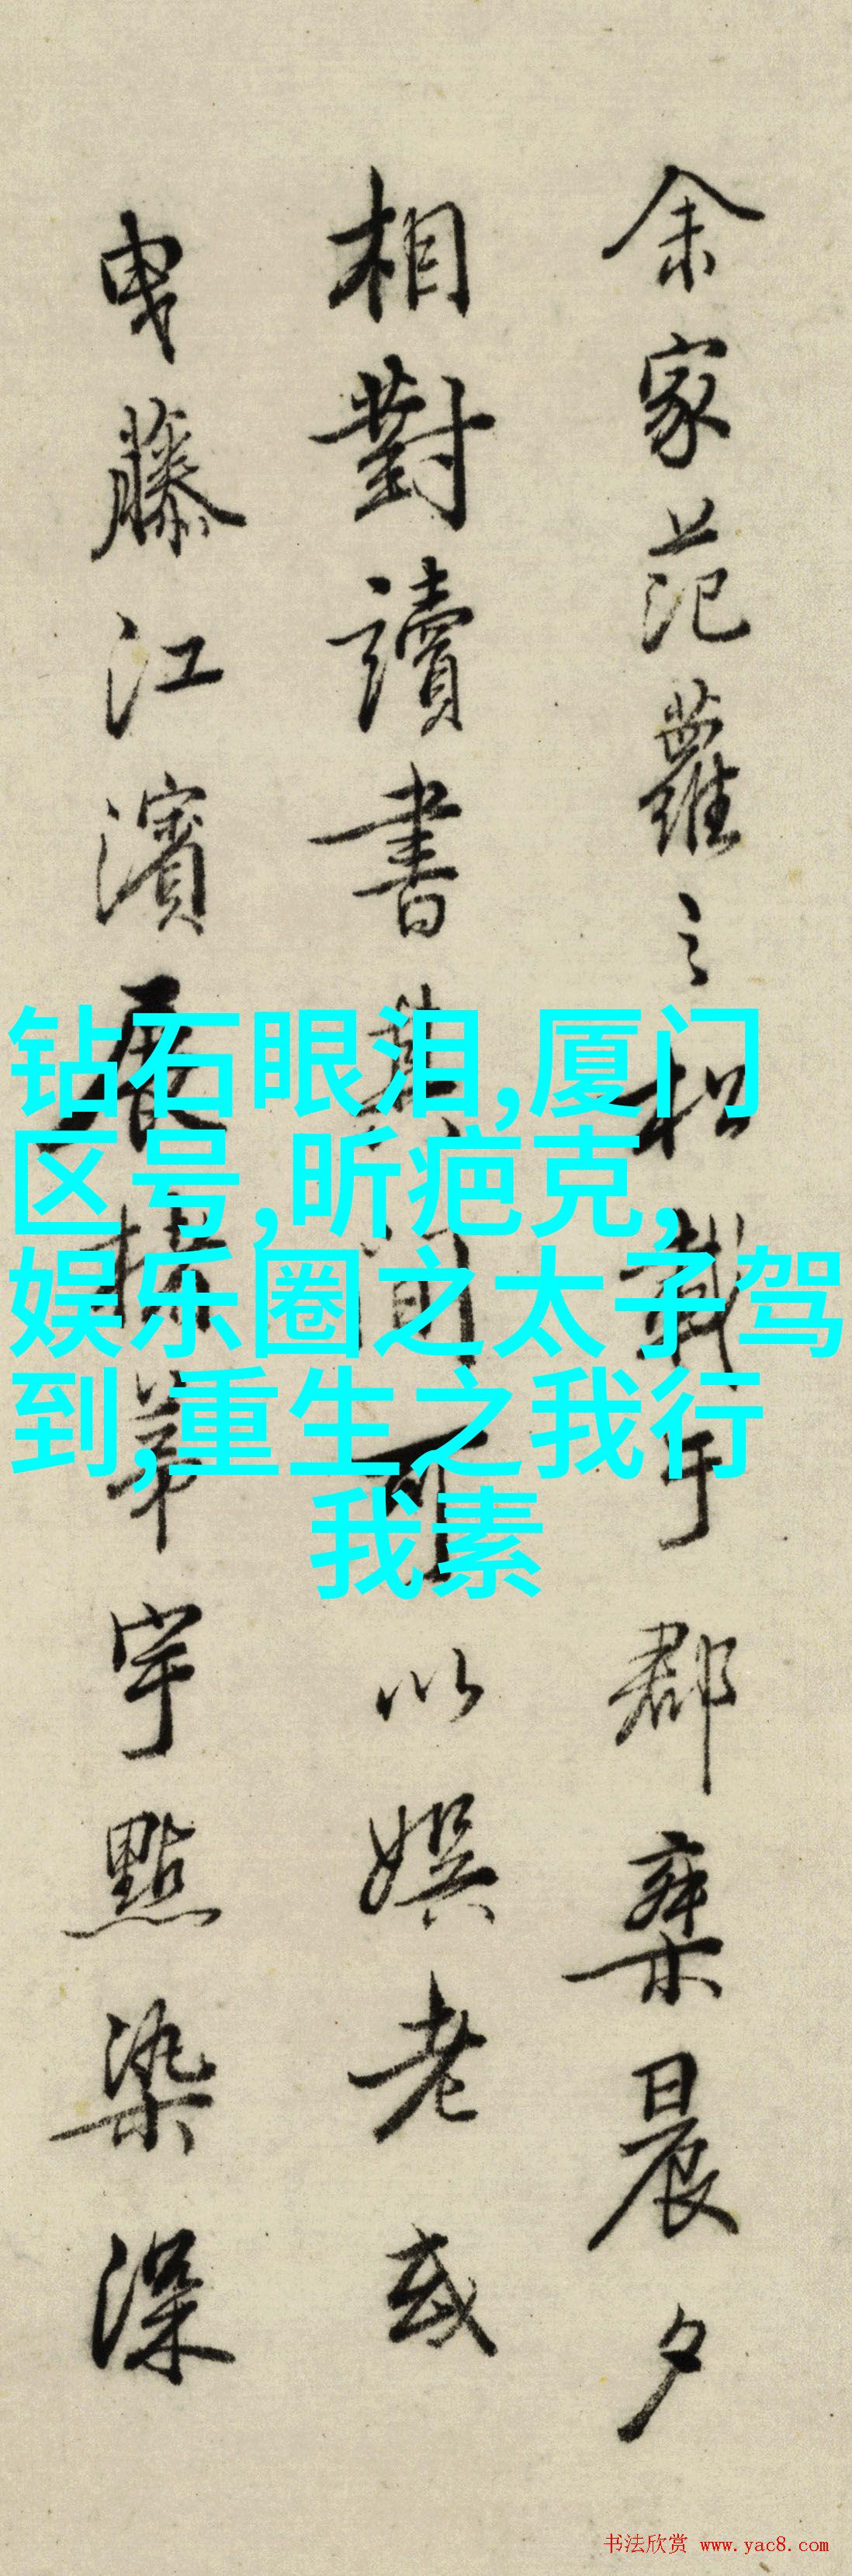 余家范蘿之松栽于郡齋晨夕
相對讀書其間可以娛老或
曳藤江濱展
宇點染深
钻石眼泪,厦门
区号,昕疤克,
娱乐圈之太子驾
到,重生之我行
我素
书法欣赏 www.yac8.com